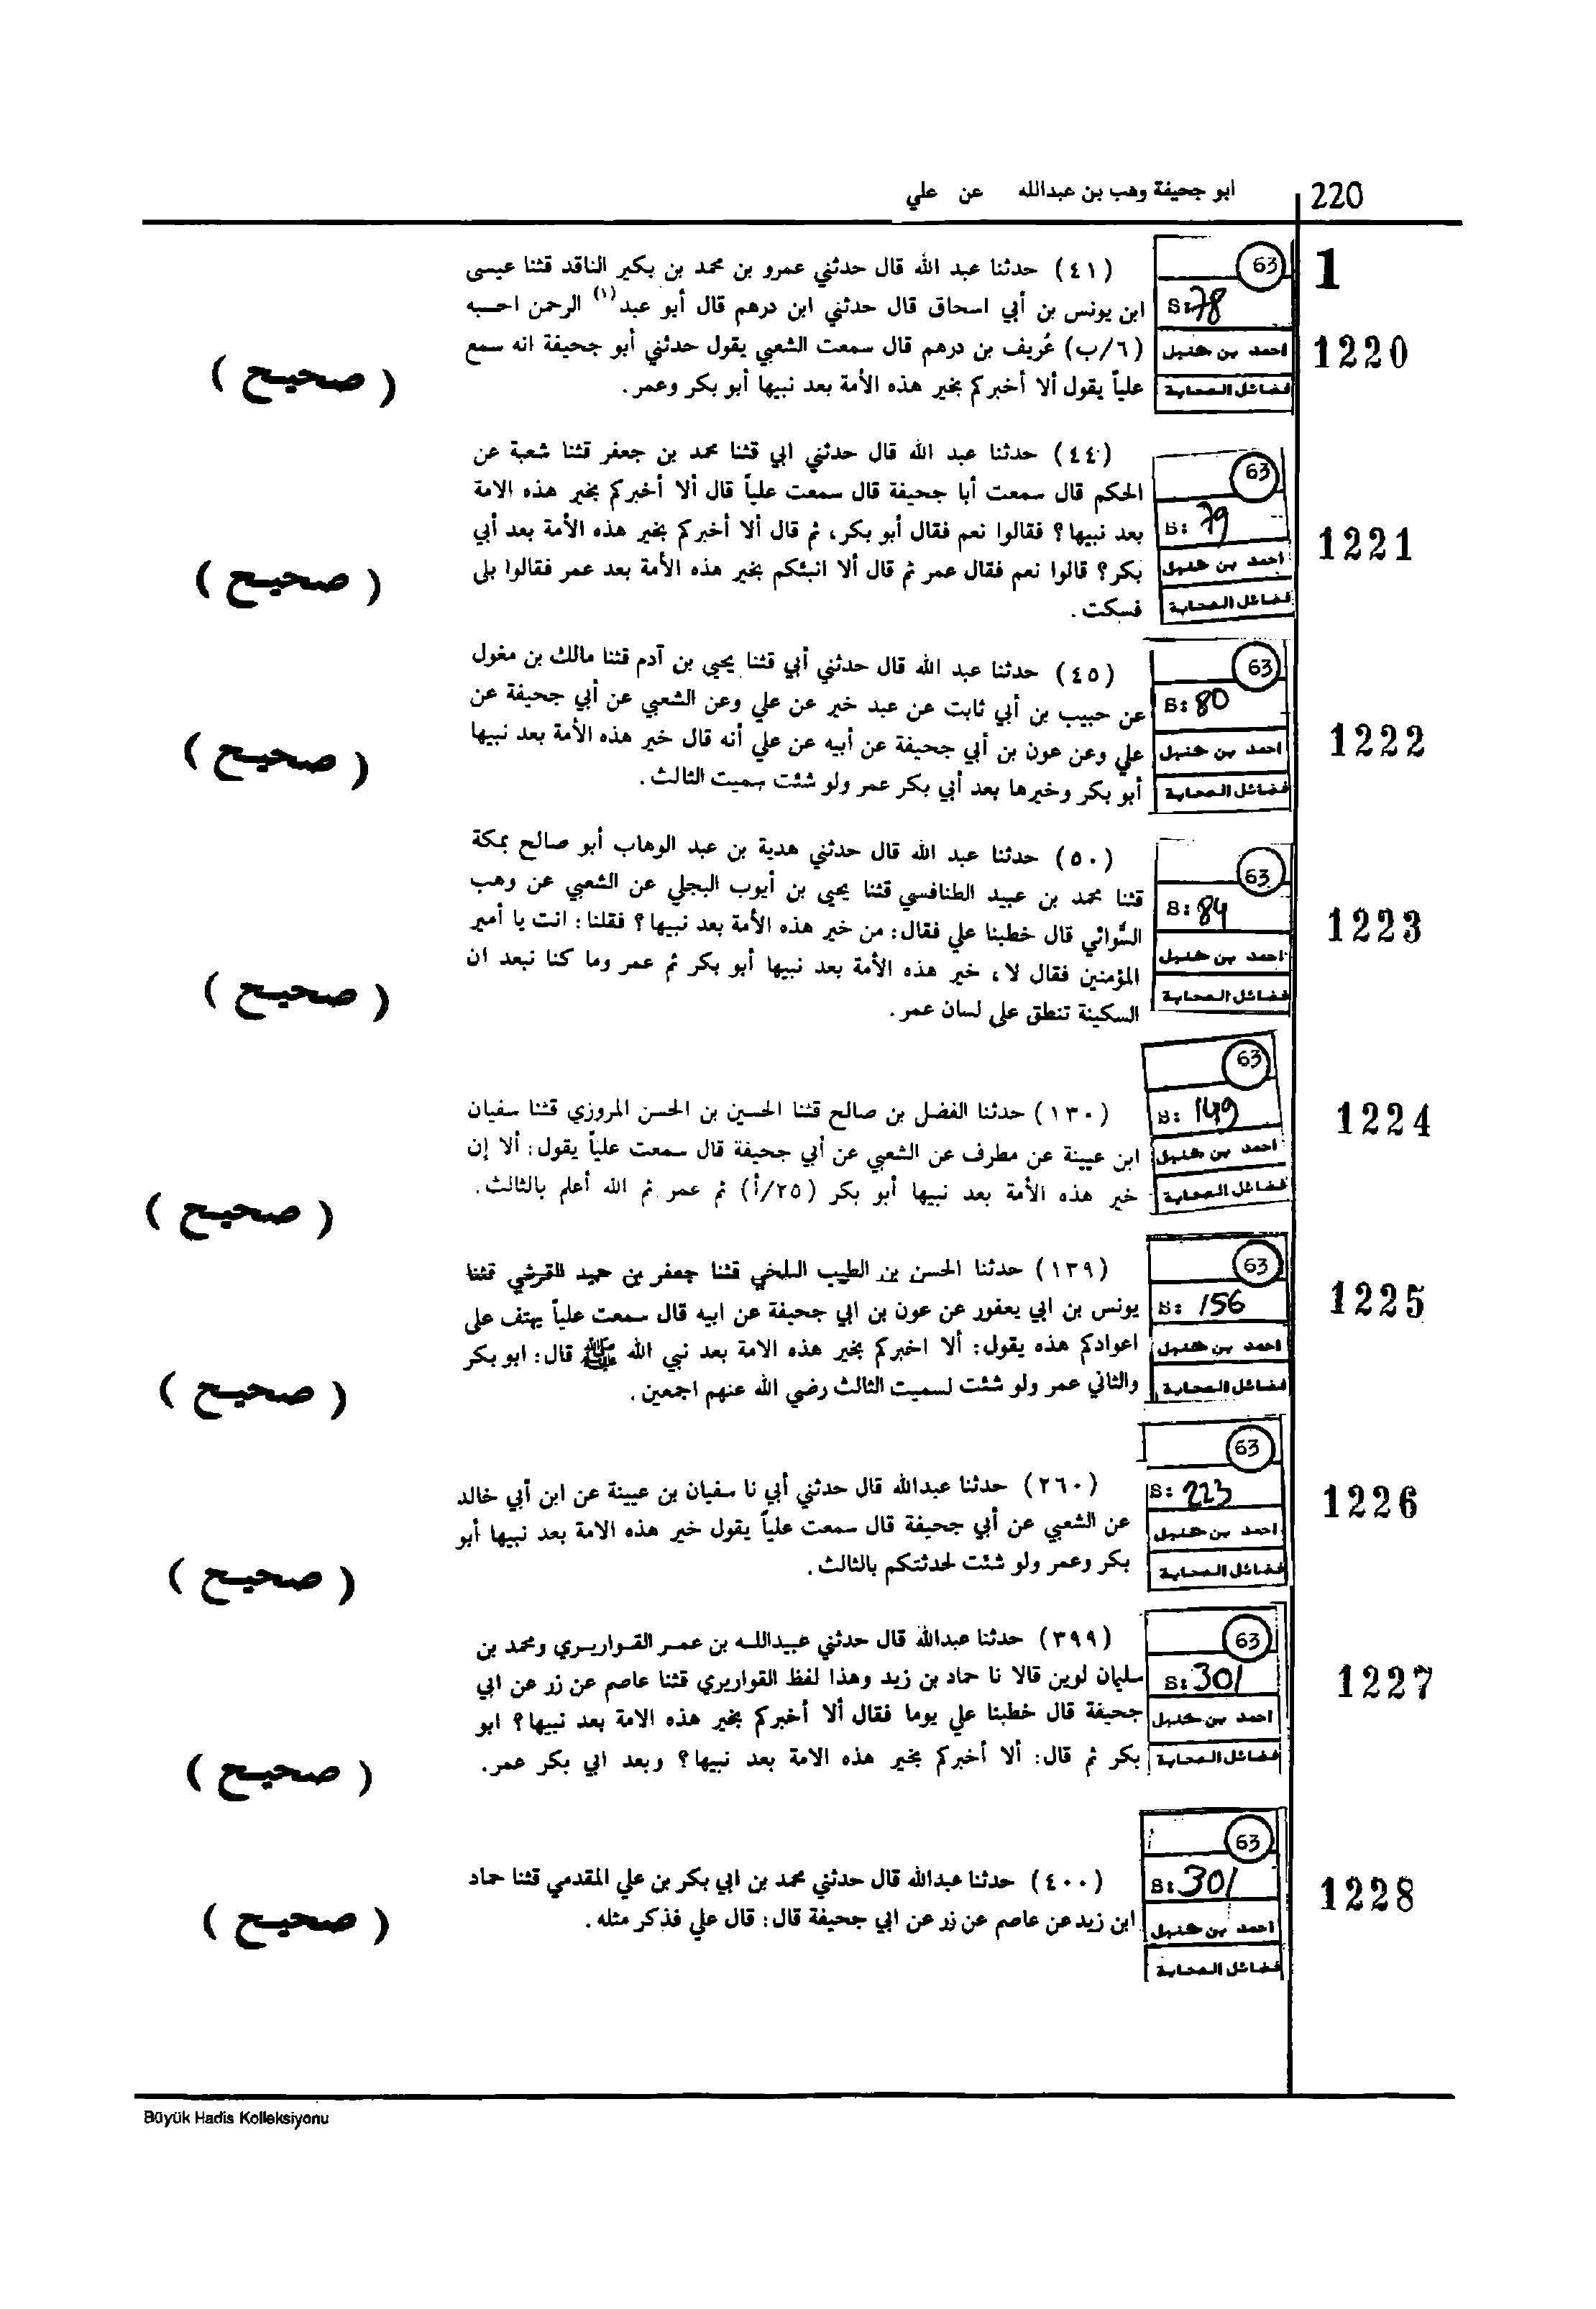 220
ابو جحيفة وهب بن عبدالله عن علي
1
63
S: 78
احمد بن حنبل
فضائل الصحابة
1220
(٤١) حدثنا عبد الله قال حدثني عمرو بن محمد بن بكير الناقد قثنا عيسى
ابن يونس بن أبي اسحاق قال حدثني ابن درهم قال أبو عبد(١) الرحمن احسبه
(٦/ب) عُريف بن درهم قال سمعت الشعبي يقول حدثني أبو جحيفة انه سمع
علياً يقول ألا أخبركم بخير هذه الأمة بعد نبيها أبو بكر وعمر.
( صحيح )
63
S: 79
احمد بن حنبل
فضائل الصحابة
1221
(٤٤) حدثنا عبد الله قال حدثني ابي قثنا محمد بن جعفر قثنا شعبة عن
الحكم قال سمعت أبا جحيفة قال سمعت علياً قال ألا أخبركم بخير هذه الامة
بعد نبيها؟ فقالوا نعم فقال أبو بكر، ثم قال ألا أخبركم بخير هذه الأمة بعد أبي
بكر؟ قالوا نعم فقال عمر ثم قال ألا انبئكم بخير هذه الأمة بعد عمر فقالوا بلى
فسكت.
( صحيح )
63
S: 80
احمد بن حنبل
فضائل الصحابة
1222
(٤٥) حدثنا عبد الله قال حدثني أبي قثنا يحيى بن آدم قثنا مالك بن مغول
عن حبيب بن أبي ثابت عن عبد خير عن علي وعن الشعبي عن أبي جحيفة عن
علي وعن عون بن أبي جحيفة عن أبيه عن علي أنه قال خير هذه الأمة بعد نبيها
أبو بكر وخيرها بعد أبي بكر عمر ولو شئت سميت الثالث.
( صحيح )
63
S: 84
احمد بن حنبل
فضائل الصحابة
1223
(٥٠) حدثنا عبد الله قال حدثني هدية بن عبد الوهاب أبو صالح بمكة
قثنا محمد بن عبيد الطنافسي قثنا يحيى بن أيوب البجلي عن الشعبي عن وهب
السُّوائي قال خطبنا علي فقال: من خير هذه الأمة بعد نبيها؟ فقلنا: انت يا أمير
المؤمنين فقال لا، خير هذه الأمة بعد نبيها أبو بكر ثم عمر وما كنا نبعد ان
السكينة تنطق على لسان عمر.
( صحيح )
63
S: 149
احمد بن حنبل
فضائل الصحابة
1224
(١٣٠) حدثنا الفضل بن صالح قثنا الحسين بن الحسن المروزي قثنا سفيان
ابن عيينة عن مطرف عن الشعبي عن أبي جحيفة قال سمعت علياً يقول: ألا إن
خير هذه الأمة بعد نبيها أبو بكر (٢٥/أ) ثم عمر ثم الله أعلم بالثالث.
( صحيح )
63
S: 156
احمد بن حنبل
فضائل الصحابة
1225
(١٣٩) حدثنا الحسن بن الطيب البلخي قثنا جعفر بن حميد القرشي قثنا
يونس بن ابي يعفور عن عون بن ابي جحيفة عن ابيه قال سمعت علياً يهتف على
اعوادكم هذه يقول: ألا اخبركم بخير هذه الامة بعد نبي الله ﷺ قال: ابو بكر
والثاني عمر ولو شئت لسميت الثالث رضي الله عنهم اجمعين.
( صحيح )
63
S: 223
احمد بن حنبل
فضائل الصحابة
1226
(٢٦٠) حدثنا عبدالله قال حدثني أبي نا سفيان بن عيينة عن ابن أبي خالد
عن الشعبي عن أبي جحيفة قال سمعت علياً يقول خير هذه الامة بعد نبيها أبو
بكر وعمر ولو شئت لحدثتكم بالثالث.
( صحيح )
63
S: 301
احمد بن حنبل
فضائل الصحابة
1227
(٣٩٩) حدثنا عبدالله قال حدثني عبيدالله بن عمر القواريري ومحمد بن
سليمان لوين قالا نا حماد بن زيد وهذا لفظ القواريري قثنا عاصم عن زر عن ابي
جحيفة قال خطبنا علي يوما فقال ألا أخبركم بخير هذه الامة بعد نبيها؟ ابو
بكر ثم قال: ألا أخبركم بخير هذه الامة بعد نبيها؟ وبعد ابي بكر عمر.
( صحيح )
63
S: 301
احمد بن حنبل
فضائل الصحابة
1228
(٤٠٠) حدثنا عبدالله قال حدثني محمد بن ابي بكر بن علي المقدمي قثنا حماد
ابن زيد عن عاصم عن زر عن ابي جحيفة قال: قال علي فذكر مثله.
( صحيح )
Büyük Hadis Kolleksiyonu